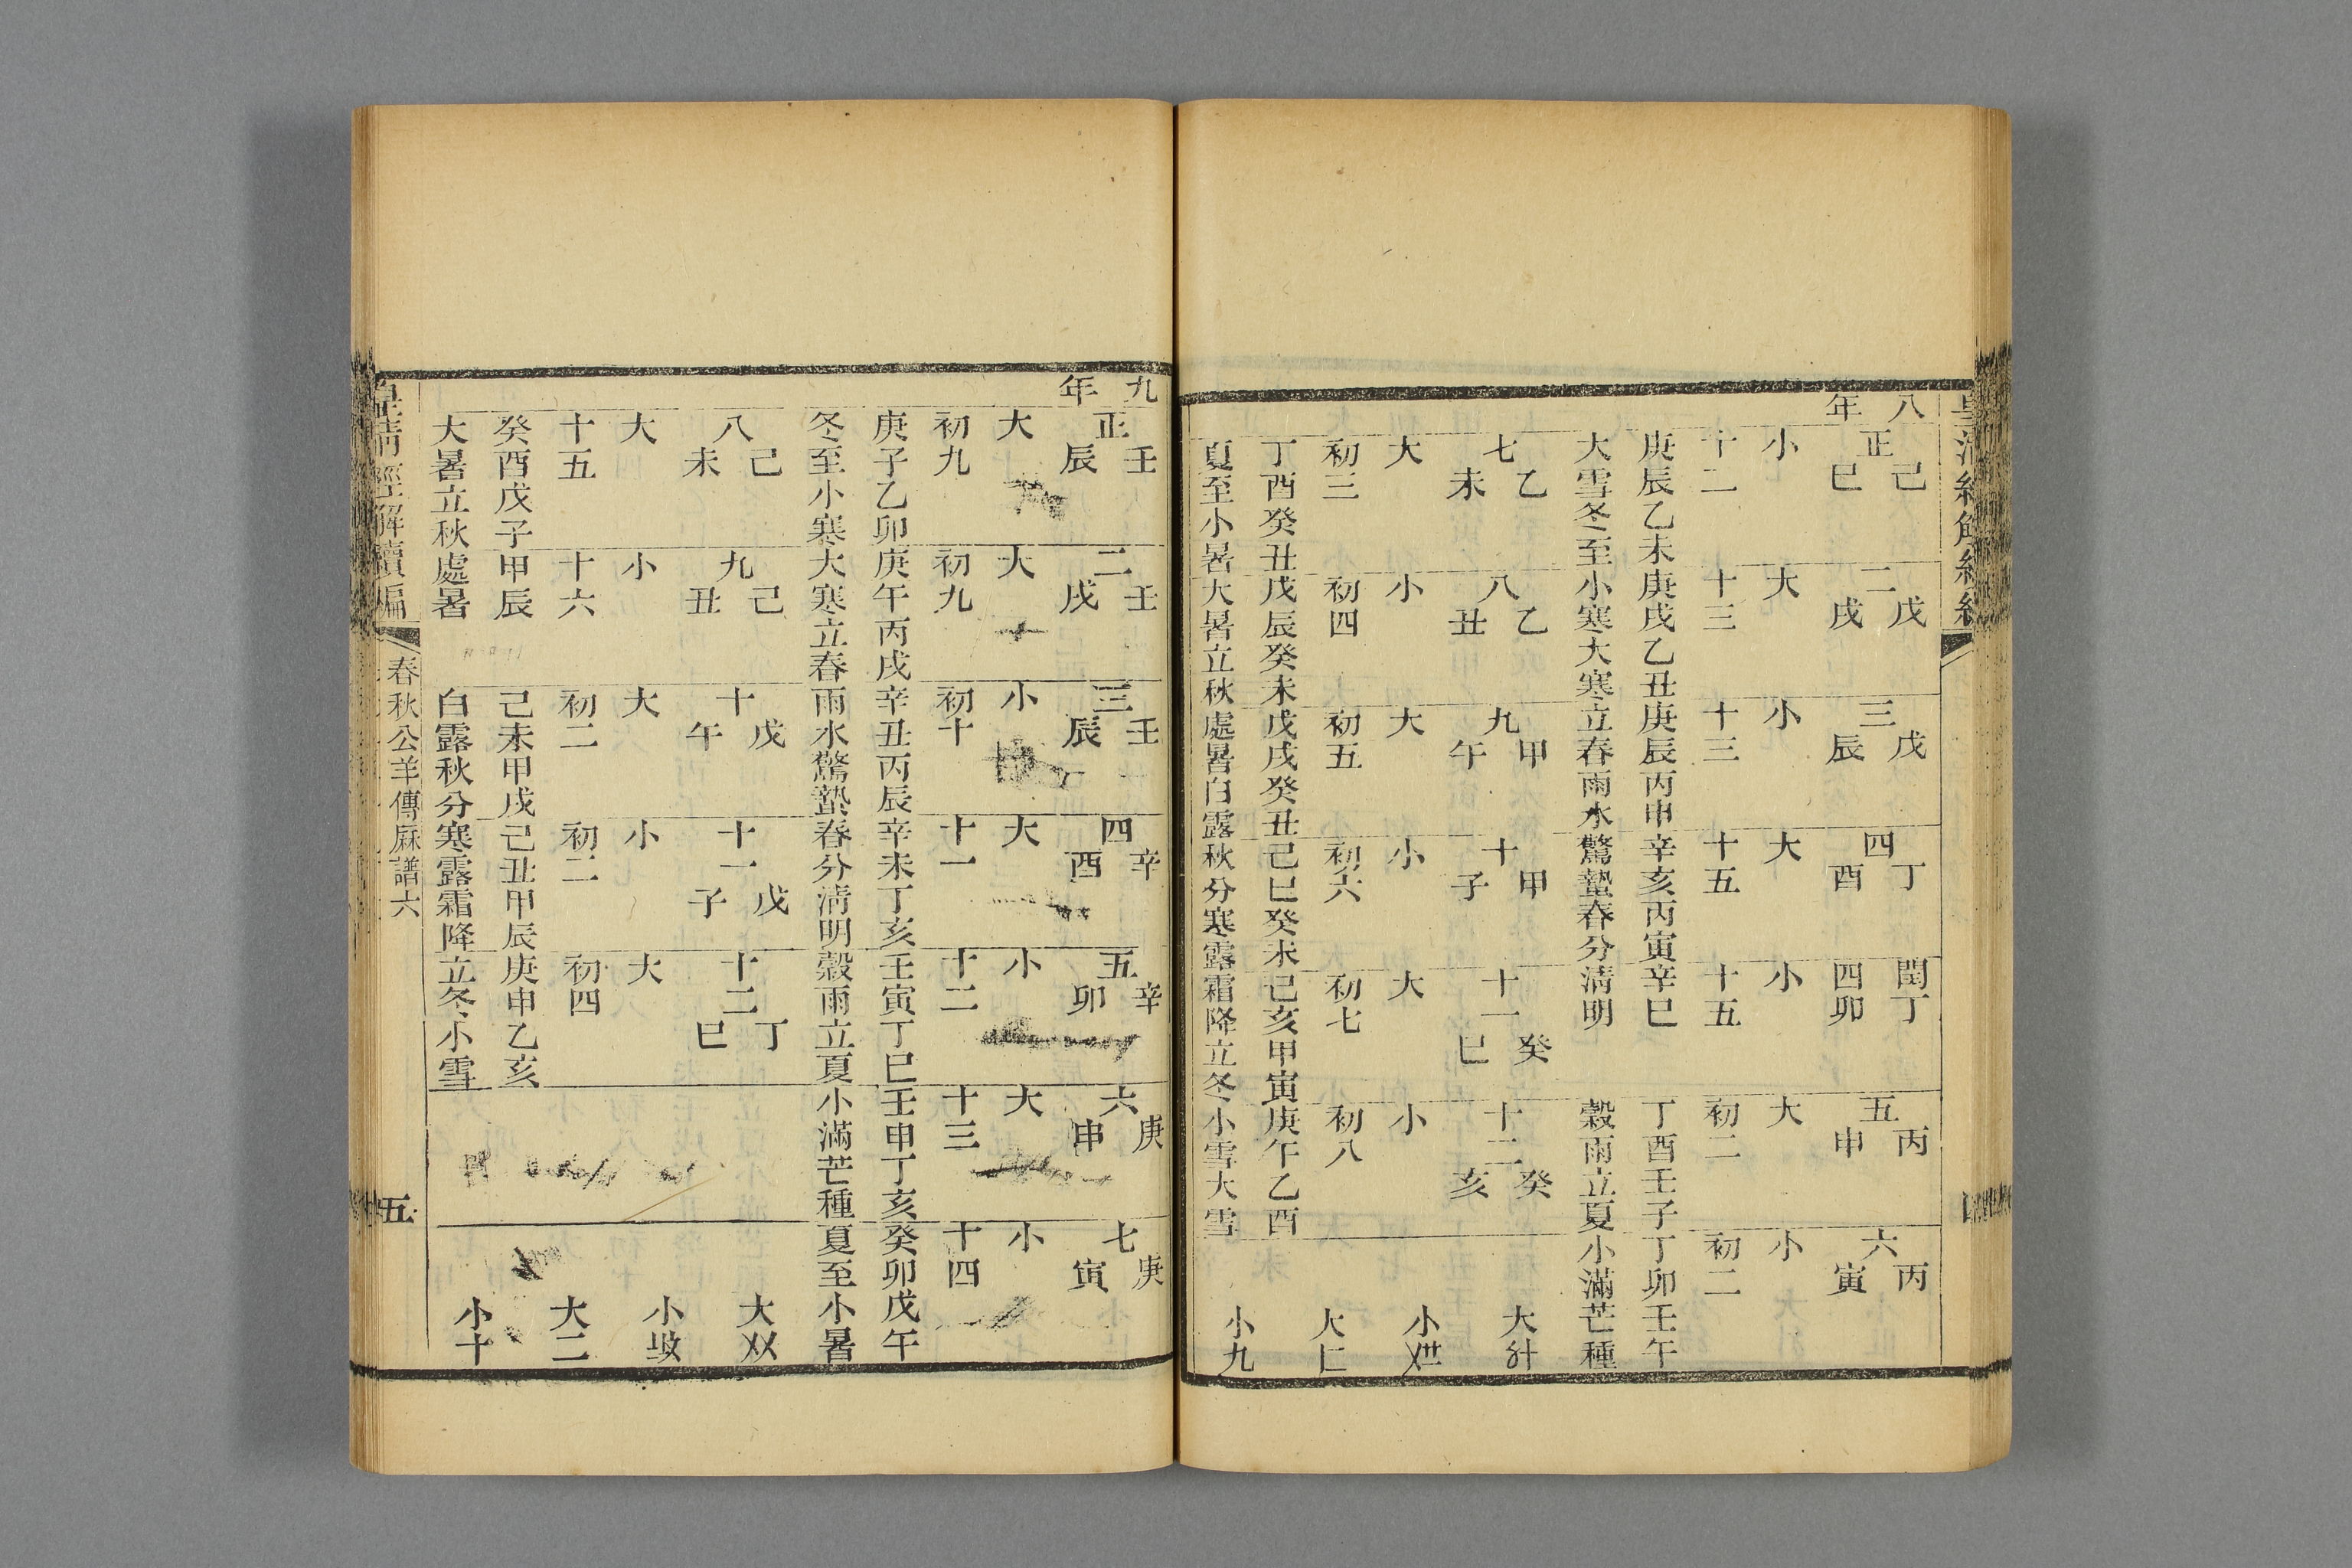 皇清經解續編
八年
正 己巳
二 戊戌
三 戊辰
四 丁酉
閏四 丁卯
五 丙申
六 丙寅
小 大 小 大 小 大 小
十二 十三 十三 十五 十五 初二 初二
庚辰乙未庚戌乙丑庚辰丙申辛亥丙寅辛巳 丁酉壬子丁卯壬午
大雪冬至小寒大寒立春雨水驚蟄春分清明 穀雨立夏小滿芒種
七 乙未
八 乙丑
九 甲午
十 甲子
十一 癸巳
十二 癸亥
大
大 小 大 小 大 小
小
初三 初四 初五 初六 初七 初八
大
丁酉癸丑戊辰癸未戊戌癸丑己巳癸未己亥甲寅庚午乙酉
夏至小暑大暑立秋處暑白露秋分寒露霜降立冬小雪大雪
小九
九年
正 壬辰
二 壬戌
三 壬辰
四 辛酉
五 辛卯
六 庚申
七 庚寅
大 大 小 大 小 大 小
初九 初九 初十 十一 十二 十三 十四
庚子乙卯庚午丙戌辛丑丙辰辛未丁亥壬寅丁巳壬申丁亥癸卯戊午
冬至小寒大寒立春雨水驚蟄春分清明穀雨立夏小滿芒種夏至小暑
八 己未
九 己丑
十 戊午
十一 戊子
十二 丁巳
大
大 小 大 小 大
小
十五 十六 初二 初二 初四
大二
癸酉戊子甲辰 己未甲戌己丑甲辰庚申乙亥
大暑立秋處暑 白露秋分寒露霜降立冬小雪
小十
皇清經解續編 春秋公羊傳厤譜六 五